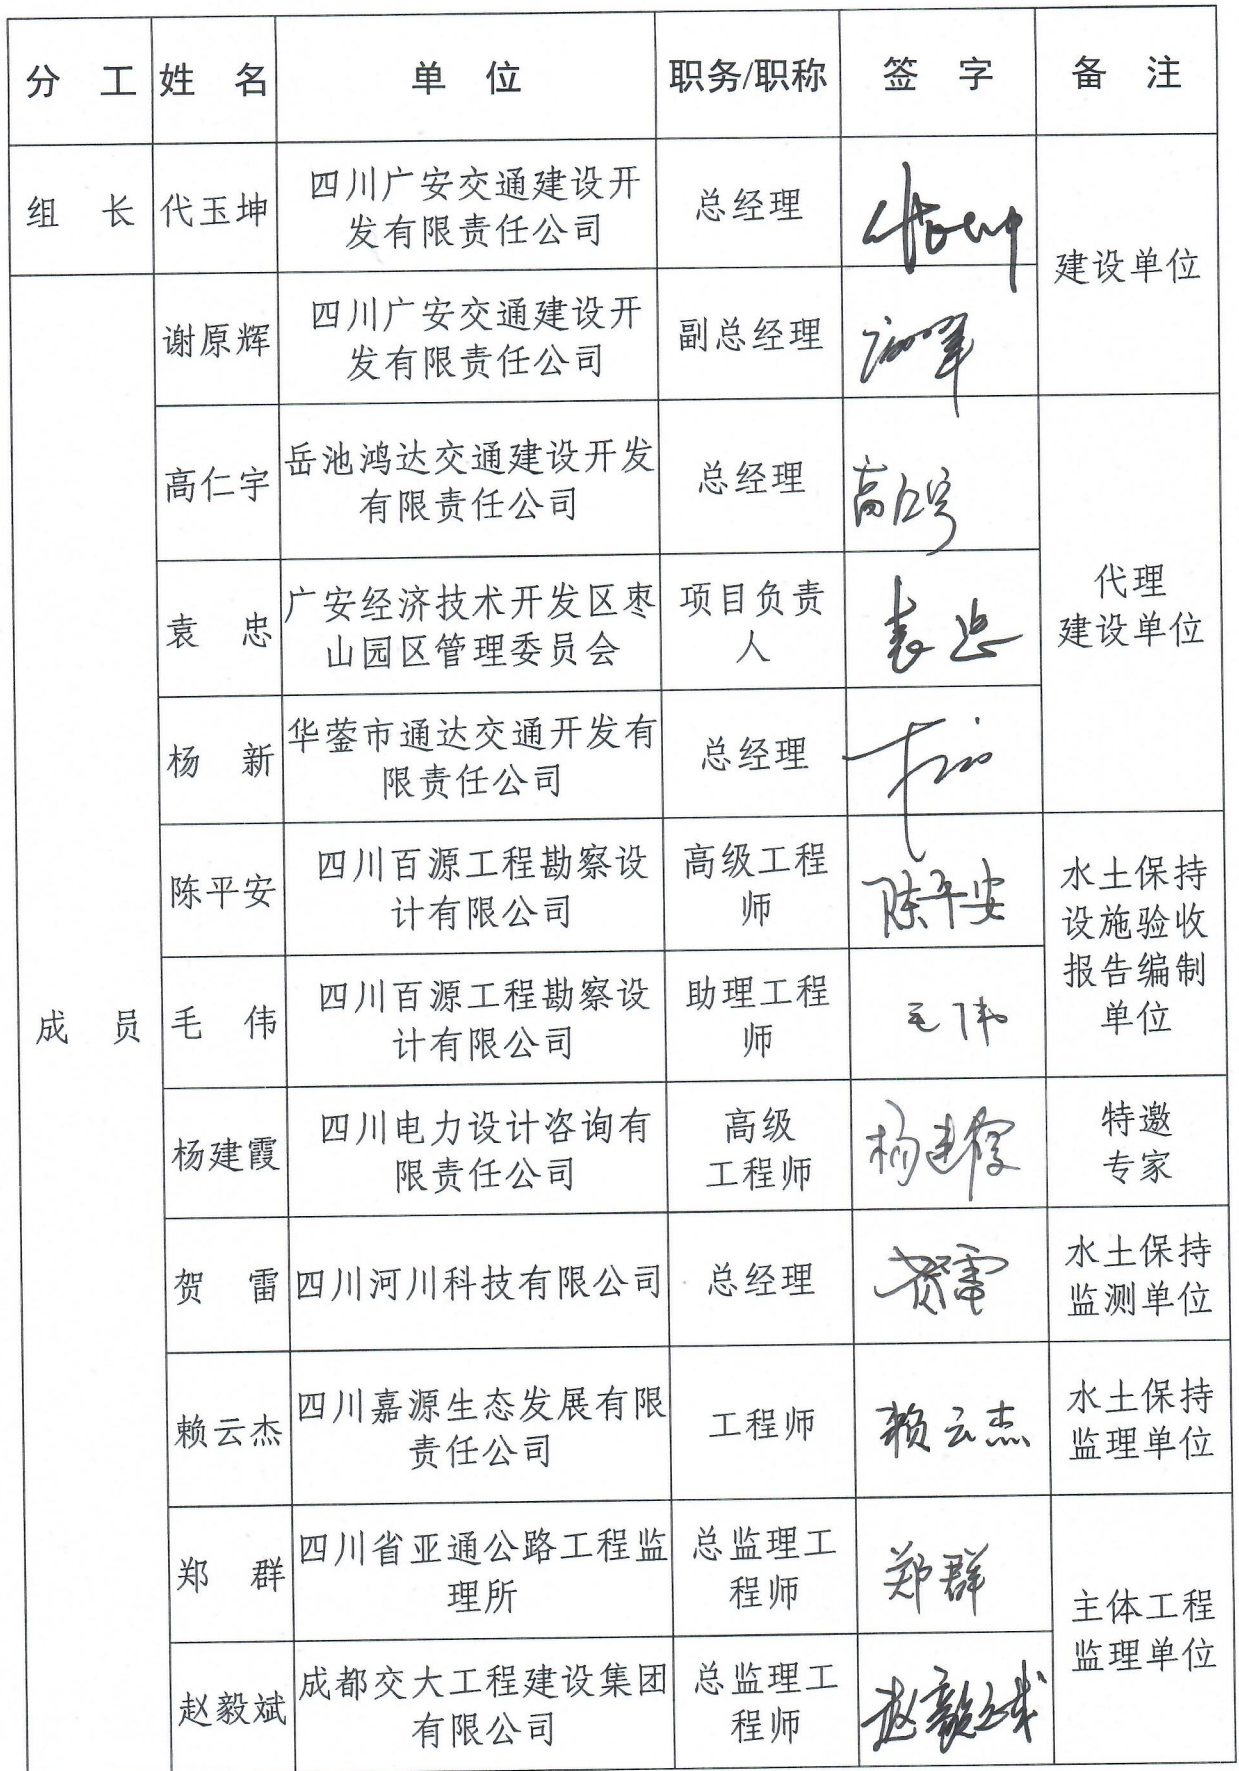 分 工 姓 名 单 位 职务/职称 签 字 备 注
组 长 代玉坤
四川广安交通建设开
发有限责任公司
总经理
建设单位
谢原辉
四川广安交通建设开
发有限责任公司
副总经理
高仁宇
岳池鸿达交通建设开发
有限责任公司
总经理
高仁宇
代理
建设单位
袁 忠
广安经济技术开发区枣
山园区管理委员会
项目负责
人
袁忠
杨 新
华蓥市通达交通开发有
限责任公司
总经理
成 员
陈平安
四川百源工程勘察设
计有限公司
高级工程
师
陈平安
水土保持
设施验收
报告编制
单位
毛 伟
四川百源工程勘察设
计有限公司
助理工程
师
毛伟
杨建霞
四川电力设计咨询有
限责任公司
高级
工程师
杨建霞
特邀
专家
贺 雷
四川河川科技有限公司
总经理
贺雷
水土保持
监测单位
赖云杰
四川嘉源生态发展有限
责任公司
工程师
赖云杰
水土保持
监理单位
郑 群
四川省亚通公路工程监
理所
总监理工
程师
郑群
主体工程
监理单位
赵毅斌
成都交大工程建设集团
有限公司
总监理工
程师
赵毅斌